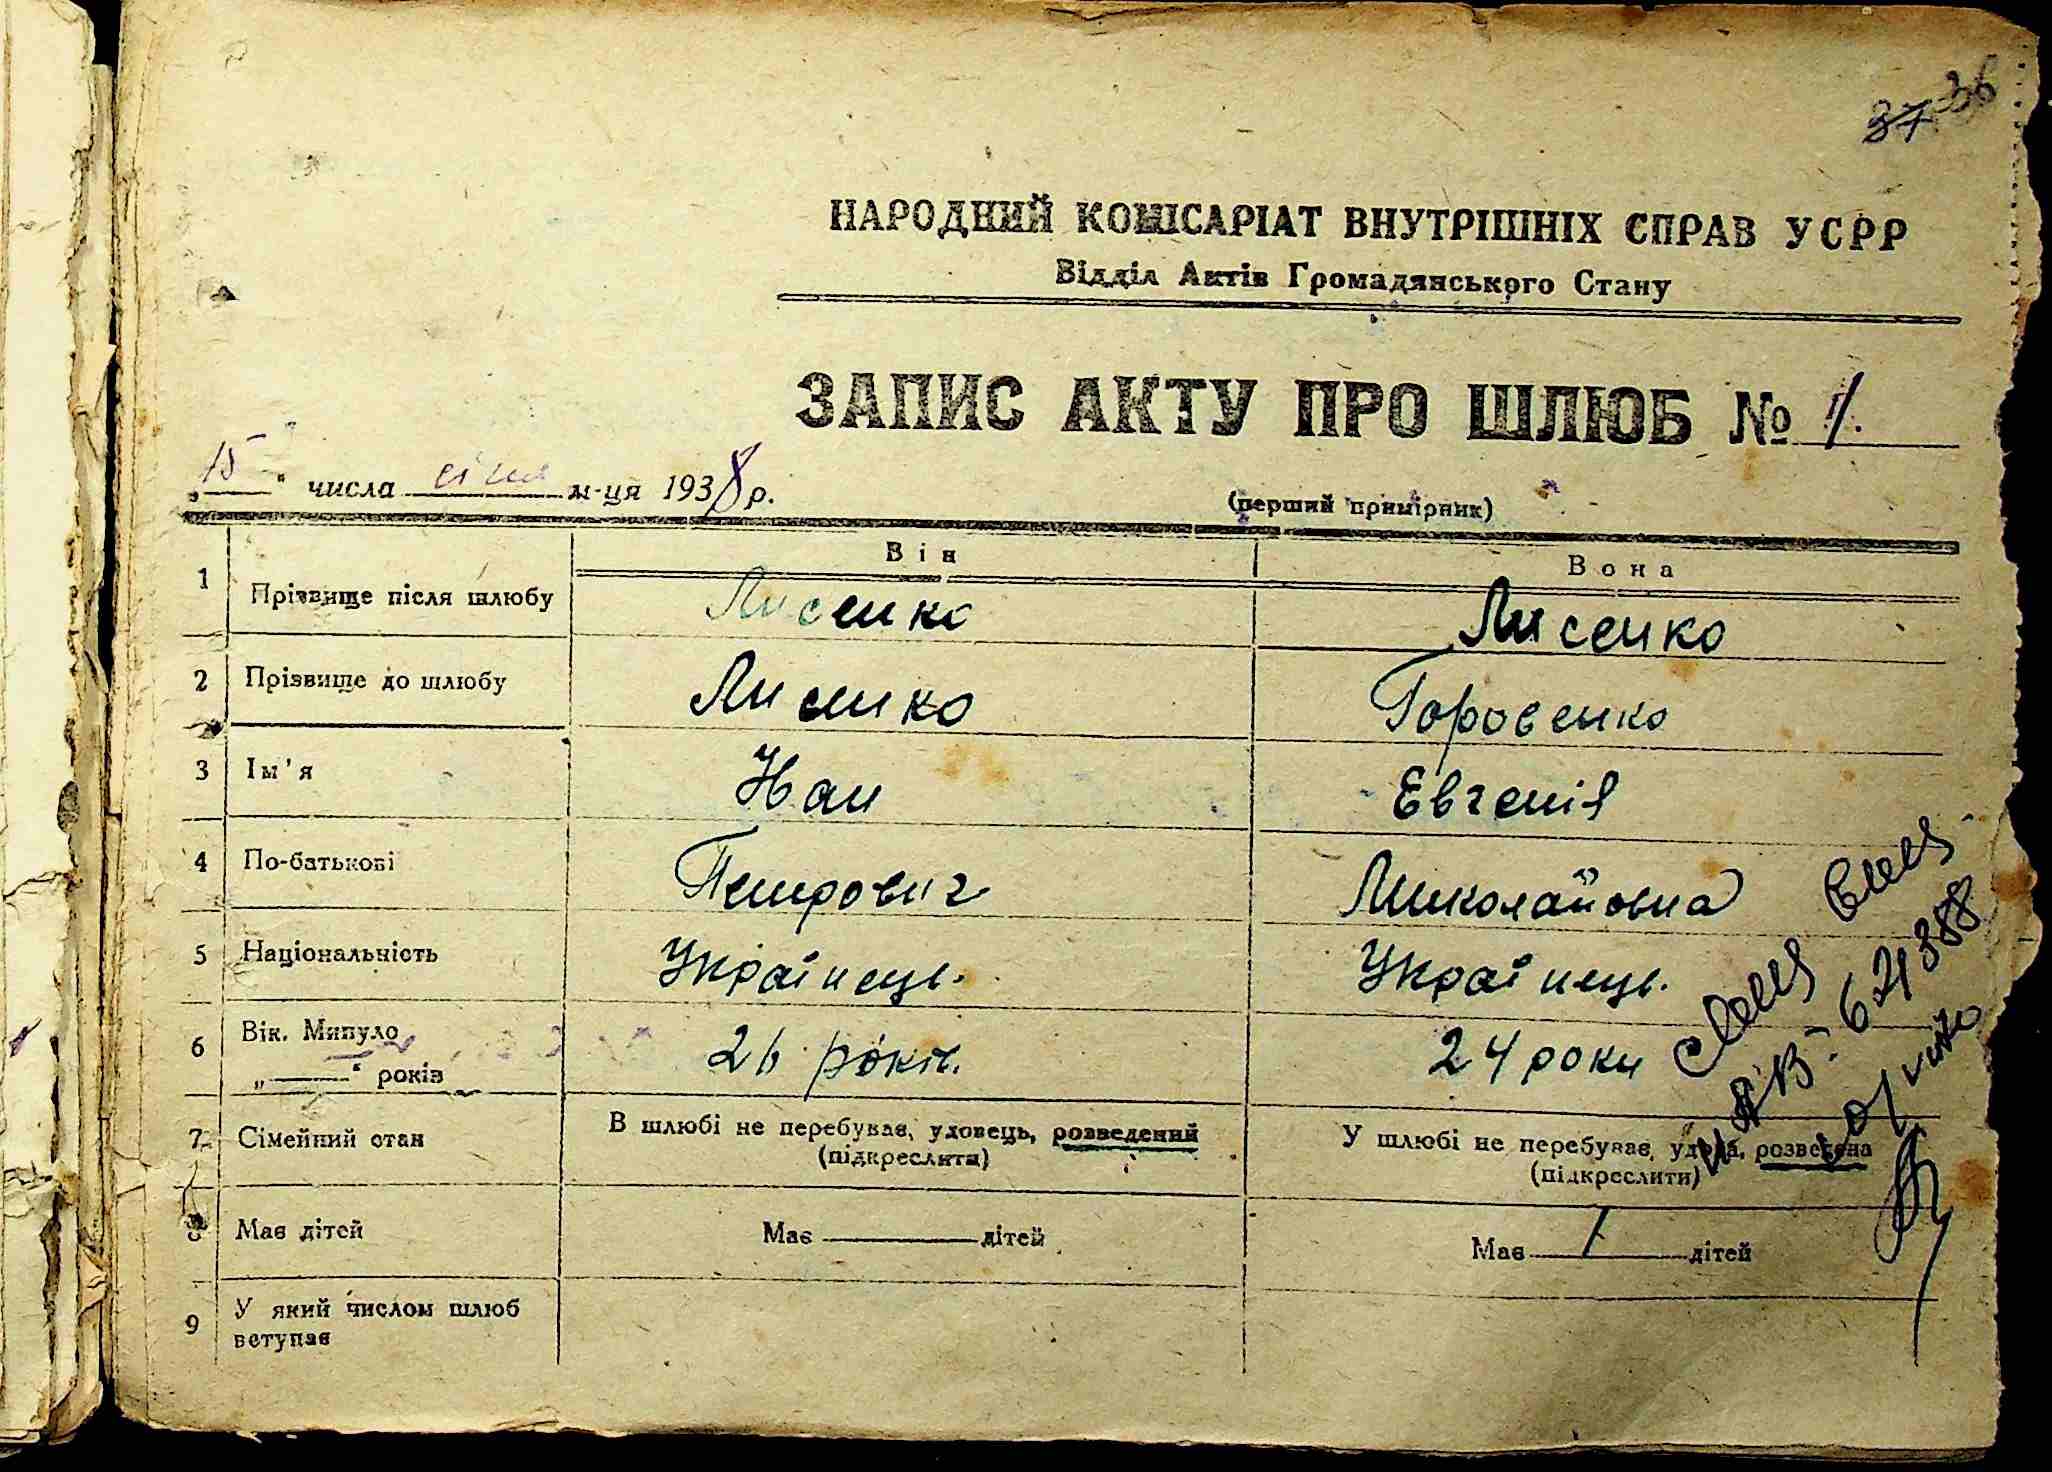 37 36
НАРОДНИЙ КОМІСАРІАТ ВНУТРІШНІХ СПРАВ УСРР
Відділ Актів Громадянського Стану
ЗАПИС АКТУ ПРО ШЛЮБ № 1.
„15" числа січня м-ця 1938 р.
(перший примірник)
Він Вона
1 Прізвище після шлюбу Лисенко Лисенко
2 Прізвище до шлюбу Лисенко Горовенко
3 Ім'я Іван Евгенія
4 По-батькові Петрович Миколаївна
5 Національність Українець. Українець.
6 Вік. Минуло „——" років 26 років. 24 роки
7 Сімейний стан В шлюбі не перебуває, удовець, розведений (підкреслити) У шлюбі не перебуває, удова, розведена (підкреслити)
8 Має дітей Має ——— дітей Має 1 дітей
9 У який числом шлюб вступає
621388